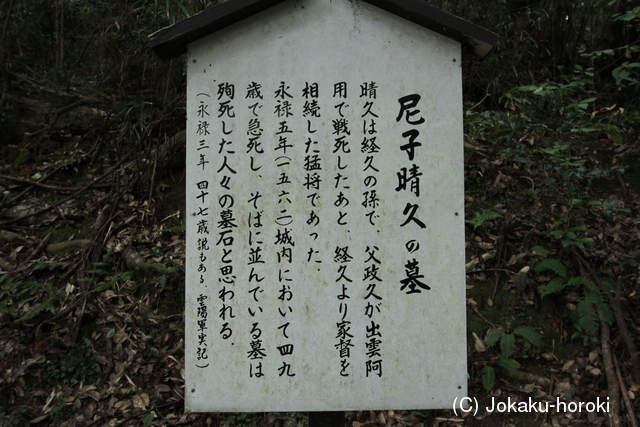 尼子晴久の墓
晴久は経久の孫で、父政久が出雲阿
用で戦死したあと、経久より家督を
相続した猛将であった。
永禄五年(一五六二)城内において四九
歳で急死し、そばに並んでいる墓は
殉死した人々の墓石と思われる。
(永禄三年 四十七歳説もある。雲陽軍実記)
(C) Jokaku-horoki